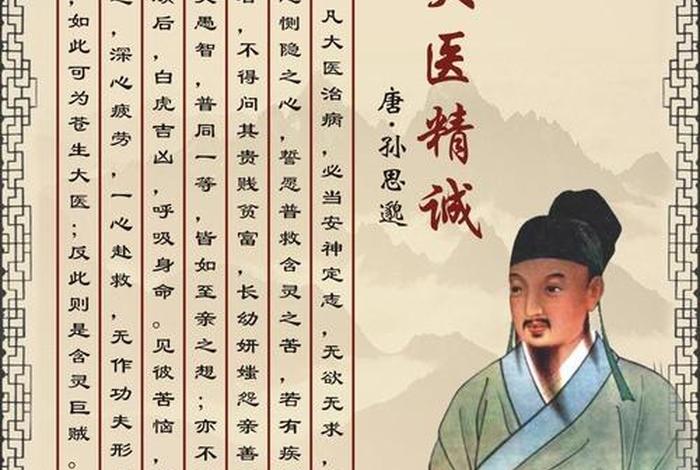 医精诚
唐·孙思邈
凡大医治病，必当安神定志，无欲无求，
恻隐之心，誓愿普救含灵之苦，若有疾
，不得问其贵贱贫富，长幼妍媸怨亲善
愚智，普同一等，皆如至亲之想；亦不
后，白虎吉凶，呼吸身命。见彼苦恼，
，深心疲劳，一心赴救，无作功夫形
，如此可为苍生大医；反此则是含灵巨贼。